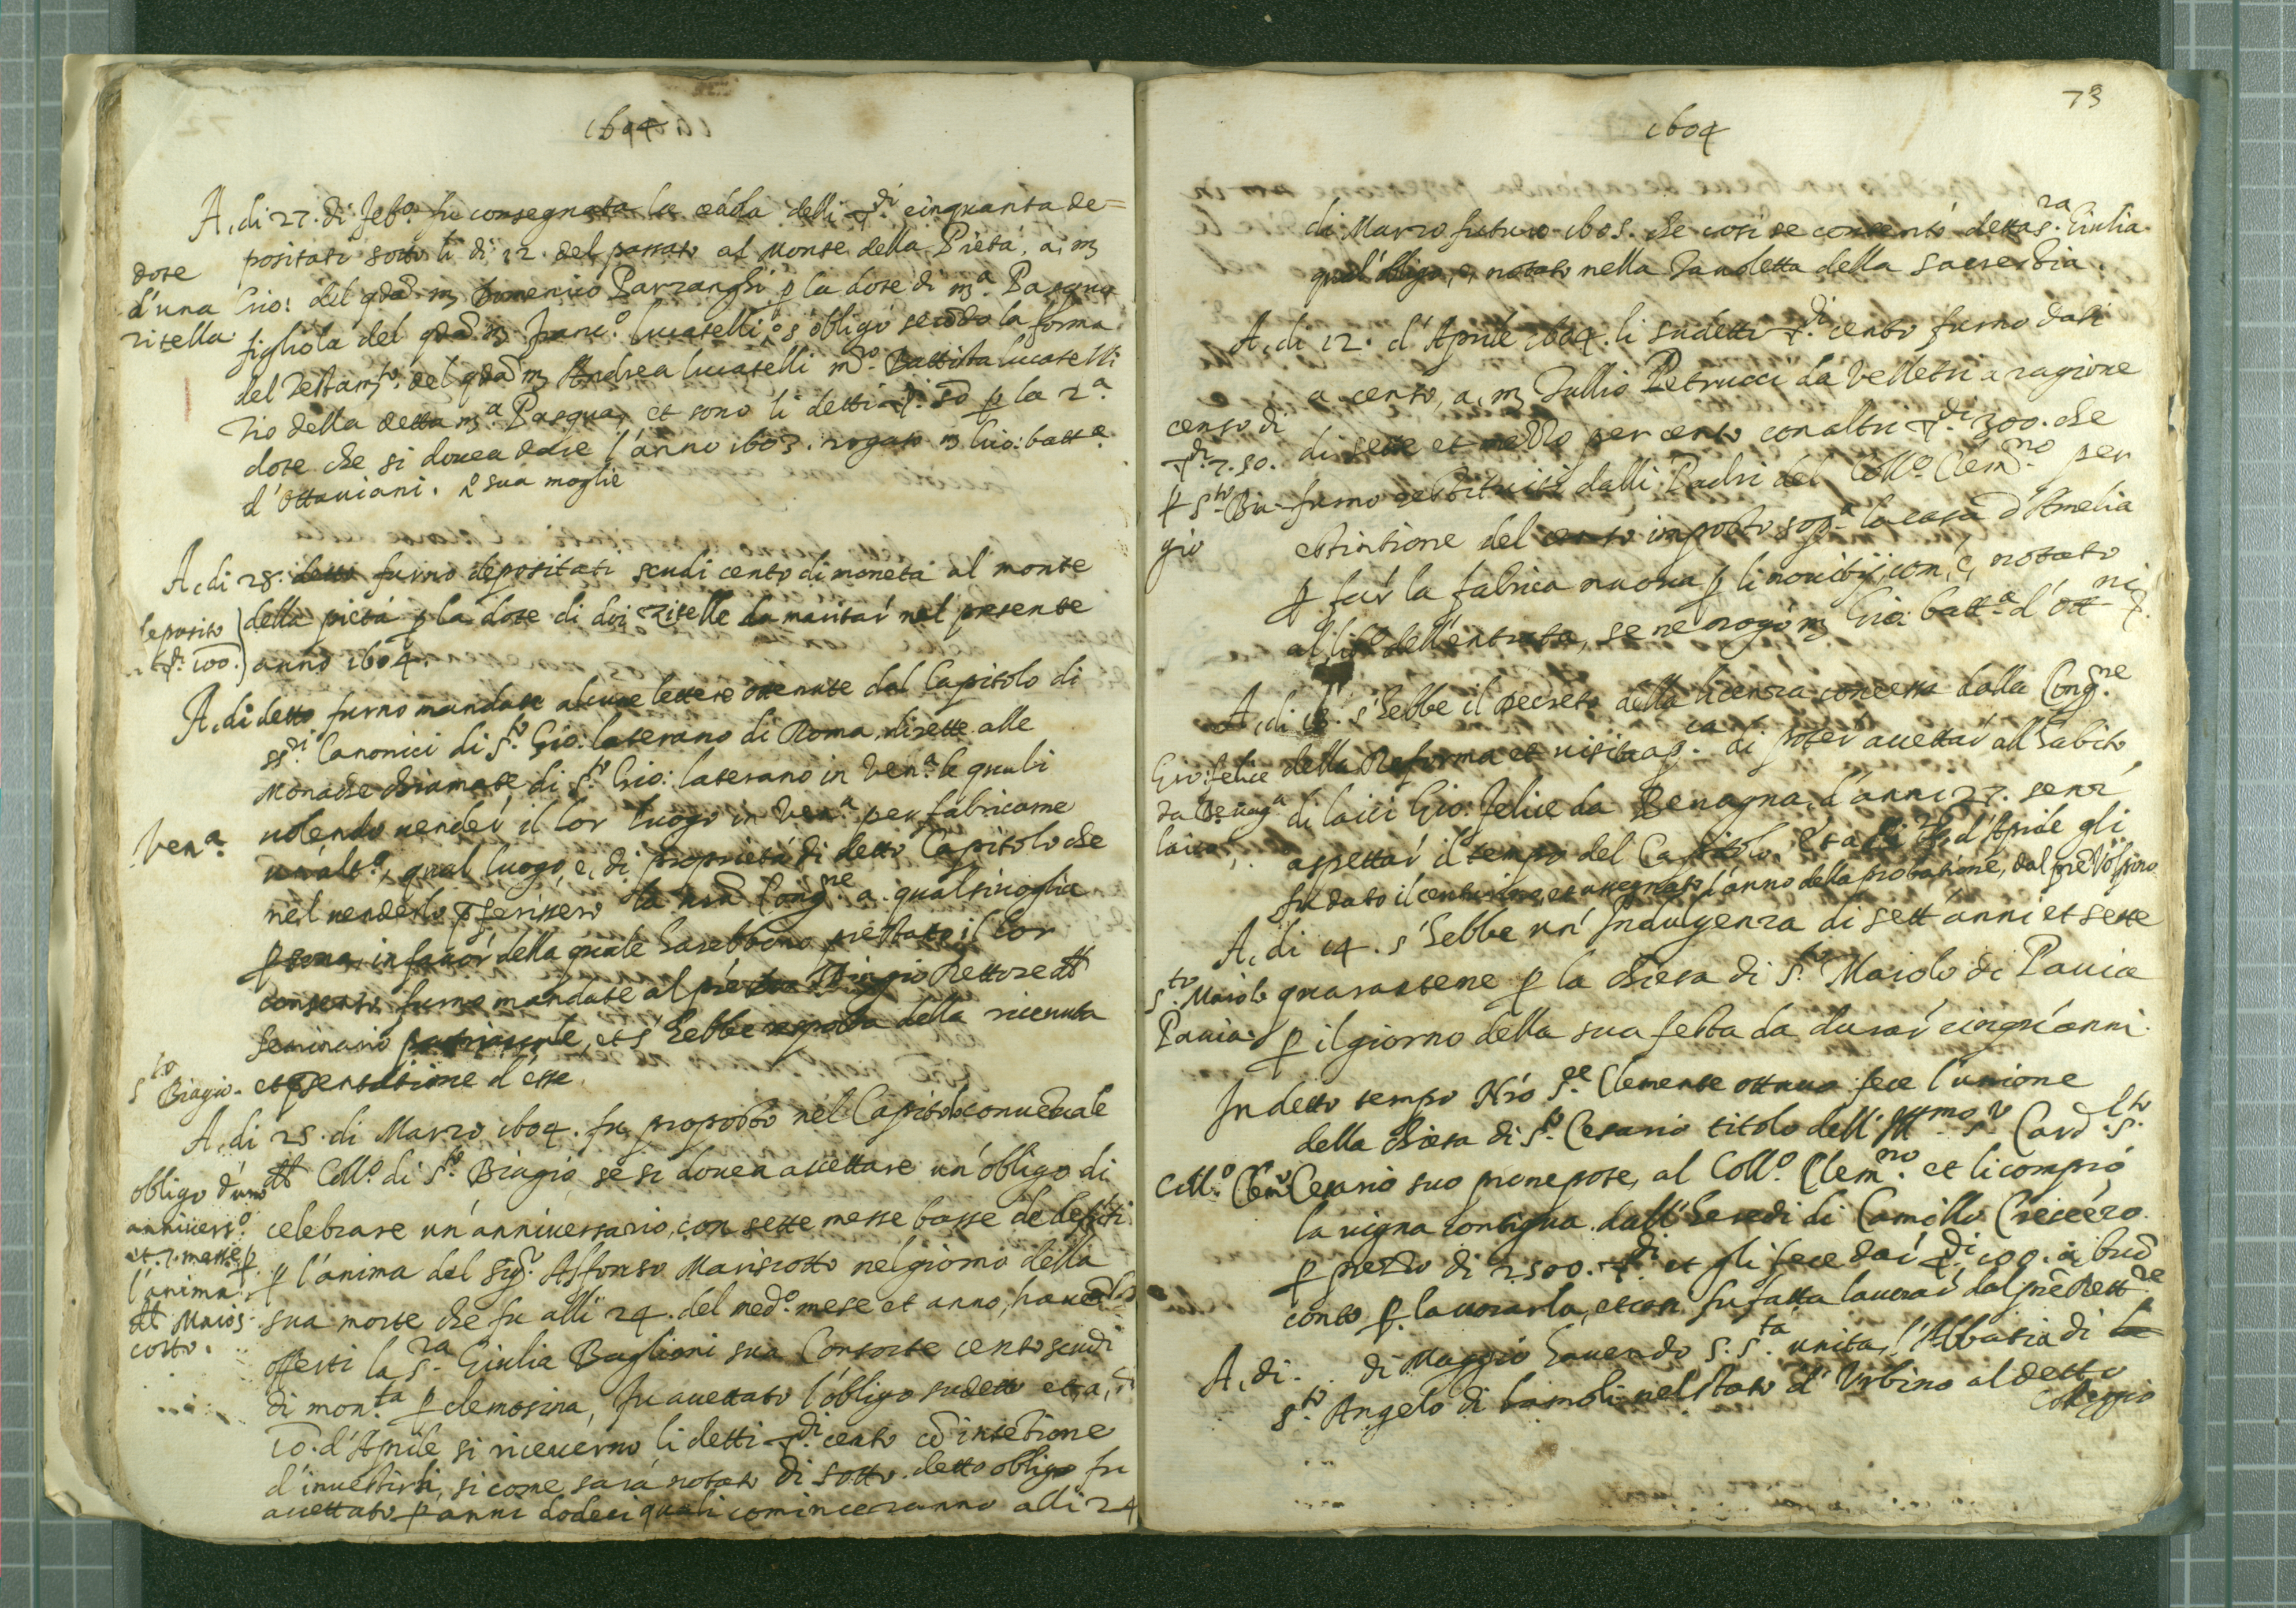 1604
A, di 27. di feb.o fu consegnata la cedola delli ∇.di cinquanta de=
positati sotto li di 12. del passato al Monte della Pietà, a, m
dote
d'una
zitella
Gio: del qda. m Domenico Parzanghi, p la dote di m.a Pasqua
figliola del qda. m Franc.o lucatelli, s'obligò secōdo la forma
del Testam.to del qda. m Andrea lucatelli m.o Battista lucatelli
zio della detta m.a Pasqua, et sono li detti ∇. 50 p la 2.a
dote che si douea dare l'anno 1603. rogato m Gio: batt.a
d'Ottauiani. sua moglie
A, di 28. detto furno depositati scudi cento di moneta al monte
deposito
∇. 100.
della pietà p la dote di doi zitelle da maritar' nel presente
anno 1604.
A, di detto furno mandate alcune lettere ottenute dal Capitolo di
ss.ri Canonici di S.to Gio: laterano di Roma, dirette alle
Monache chiamate di S.to Gio: laterano in Ven.a le quali
Ven.a
uolendo uender' il lor luogo in Ven.a per fabricarne
un'alt.o, qual luogo, è, di proprietà di detto Capitolo che
nel uenderlo pferissero la nrā Cong.ne a qualsiuoglia
psona, in fauor della quale harebbono prestato il lor
consenso, furno mandate al prē Rettore dl
Seminario patriarcale, et s'hebbe risposta della riceuuta
S.to Biagio.
et psentatione d'esse.
A, di 25. di Marzo 1604. fu proposto nel Capitolo conuētuale
obligo d'uno
anniuers.o
et 7. messe p
l'anima
dl Maris
cotto.
dl Coll.o di S.to Biagio, se si douea accettare un'obligo di
celebrare un'anniuersario, con sette messe basse de defōti
p l'anima del sig.r Alfonso Mariscotto nel giorno della
sua morte che fu alli 24. del med.o mese et anno, hauēdo
offerti la S.ra Giulia Baglioni sua Consorte cento scudi
di mon.ta p elemosina, fu accettato l'obligo sudetto et, a, di
10. d'Aprile si riceuerno li detti ∇.di cento cō intētione
d'inuestirli, si come sarà notato di sotto. detto obligo fu
accettato p anni dodeci quali cominceranno alli 24
73
1604
di Marzo futuro 1605. che così se contentò detta S.ra Giulia
qual'obligo, è, notato nella Tauoletta della sacrestia.
A, di 12. d'Aprile 1604. li sudetti ∇.di cento furno dati
a censo, a, m Tullio Petrucci da Velletri a ragione
censo di
∇.di 7. 50.
p S.to Bia
gio
di sette et mezzo per cento con altri ∇.di 300. che
furno restituiti dalli Padri del Coll.o Clem.no per
estintione del censo imposto sop.a la casa d'Amelia
p far la fabrica nuoua p li nouitij, com', è, notato
al lib.o dell'entrata, se ne rogò m Gio: batt.a d'Ott.ni
A, di 13. s'hebbe il Decreto della licenza concessa dalla Cong.ne
Gio: felice
da Beuag.a
laico,
della Reforma et uisita ap.ca di poter accettar all'habito
di laici Gio: felice da Beuagna, d'anni 27. senz'
aspettar' il tempo del Capitolo, d'Aprile gli
fu dato il centurino, et assegnato l'anno della probatione, dal prē Volpino
A, di 14. s'hebbe un'Indulgenza di sett'anni et sette
S.to Maiolo
Pauia.
quarantene p la chiesa di S.to Maiolo di Pauia
p il giorno della sua festa da durar' cinqu'anni.
In detto tempo N'rō S.re Clemente ottauo fece l'unione
della chiesa di S.to Cesario titolo dell'Ill.mo S.r Card. S.to
Coll.o Clem.no
Cesario suo pronepote, al Coll.o Clem.no et li comprò
la uigna contigua dall'heredi di Camillo
p prezzo di 2500. ∇.di et gli fece dar' ∇.di 100. a, buō
conto p lauorarla, et così fu fatta lauorar' dal prē Rett.re
A, di . . di Maggio hauendo S. S.tà unita, l'Abbatia di
S.to Angelo di lamoli nel stato d'Urbino al detto
Collegio